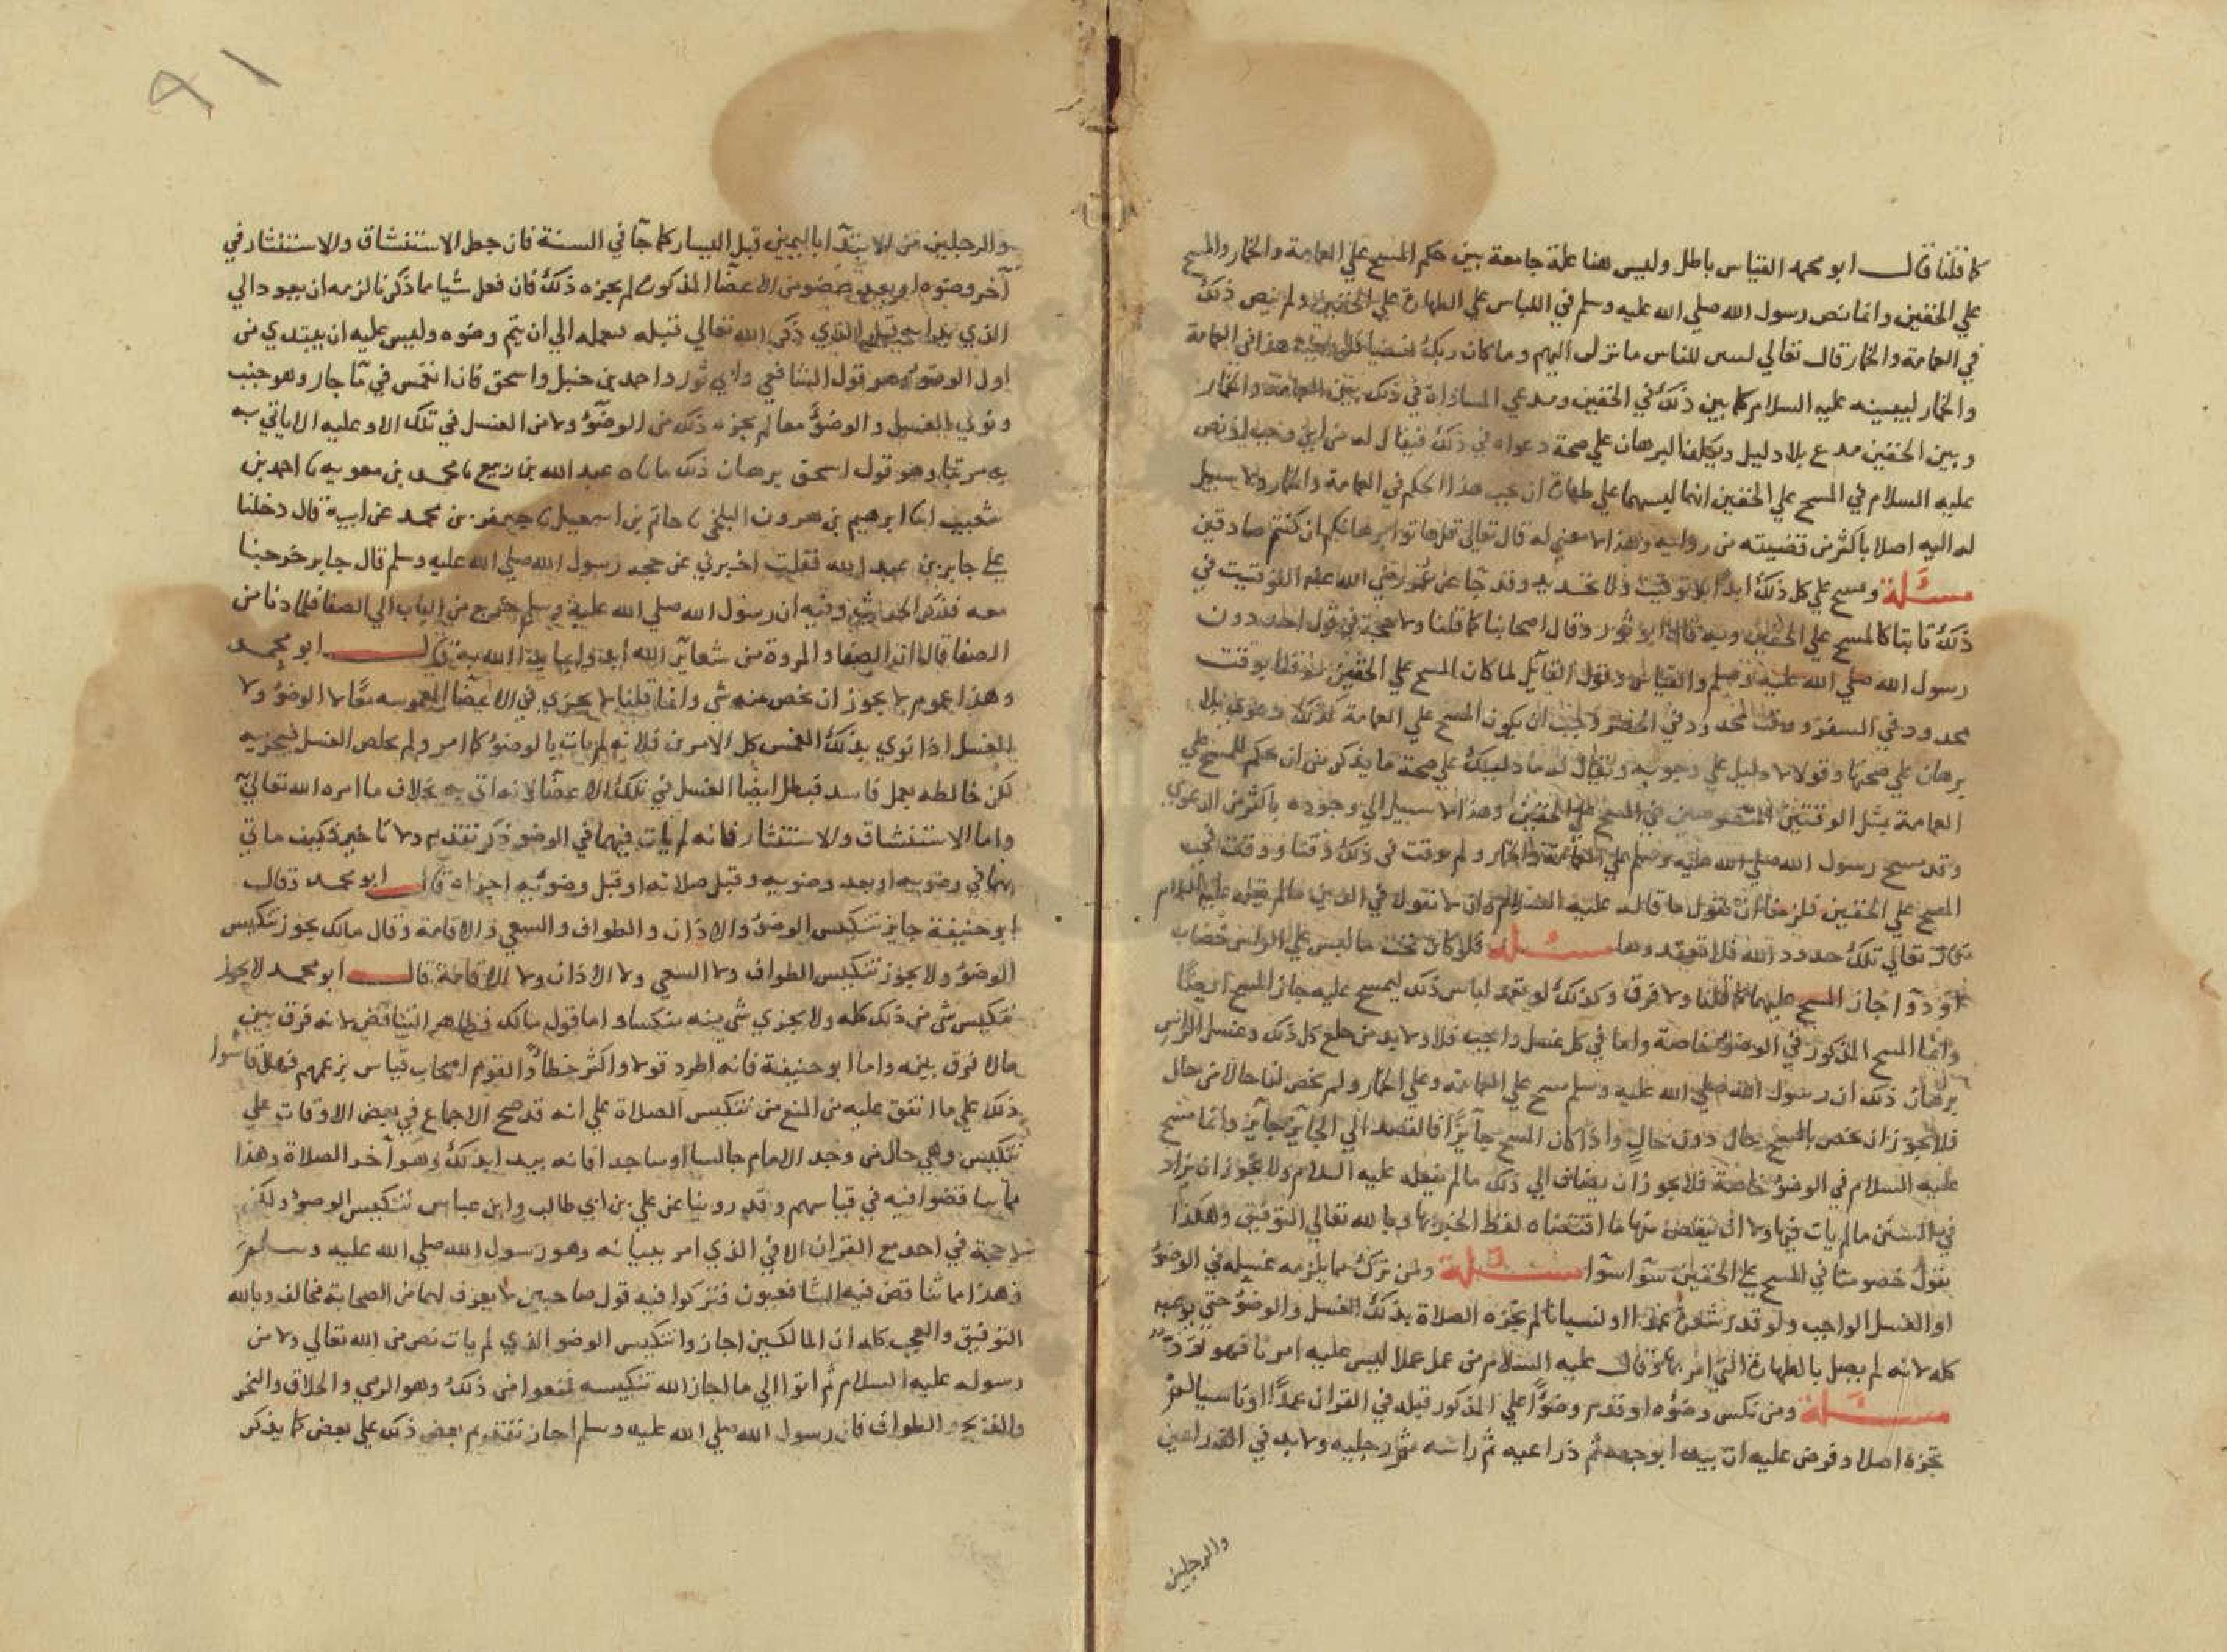 ٩١
كما قلنا قال ابو محمد القياس باطل وليس هنا علة جامعة بين حكم المسح علي العمامة والخمار والمسح
علي الخفين وانما نص رسول الله صلي الله عليه وسلم في اللباس علي الطهارة علي الخفين ولم ينص ذلك
في العمامة والخمار قال تعالي لتبين للناس ما نزل اليهم وما كان ربك نسيا فلو وجب هذا في العمامة
والخمار لبينه عليه السلام كما بين ذلك في الخفين ومدعي المساواة في ذلك بين العمامة والخمار
وبين الخفين مدع بلا دليل ويكلف البرهان علي صحة دعواه في ذلك فيقال له من اين وجب اذ نص
عليه السلام في المسح علي الخفين انه لبسهما علي طهارة ان يجب هذا الحكم في العمامة والخمار ولا سبيل
له اليه اصلا باكثر من قضيته من رايه وهذا لا معني له قال تعالي قل هاتوا برهانكم ان كنتم صادقين
مسئلة ومسح علي كل ذلك ابدا بلا توقيت ولا تحديد وقد جا عن عمر رضي الله عنه التوقيت في
ذلك ثابتا كالمسح علي الخفين وبه قال ابو ثور وقال اصحابنا كما قلنا ولا حجة في قول احد دون
رسول الله صلي الله عليه وسلم والقياس وقول القايل لما كان المسح علي الخفين موقتا بوقت
محدود في السفر ووقت محدود في الحضر وجب ان يكون المسح علي العمامة كذلك دعوي بلا
برهان علي صحتها وقول لا دليل علي وجوبه ويقال له ما دليلك علي صحة ما يذكر من ان حكم المسح علي
العمامة مثل الوقتين المنصوصين في المسح علي الخفين وهذا لا سبيل الي وجوده باكثر من الدعوي
وقد مسح رسول الله صلي الله عليه وسلم علي العمامة والخمار ولم يوقت في ذلك وقتا ووقت في
المسح علي الخفين فلزمنا ان نقول ما قاله عليه السلام وان لا نقول في الدين ما لم يقله عليه السلام
قال تعالي تلك حدود الله فلا تعتدوها مسئلة فلو كان تحت ما لبس علي الراس خضاب
او دوا جاز المسح عليهما كما قلنا ولا فرق وكذلك لو تعمد لباس ذلك ليمسح عليه جاز المسح ايضا
وانما المسح المذكور في الوضو خاصة واما في كل غسل واجب فلا ولا بد من خلع كل ذلك وغسل الراس
برهان ذلك ان رسول الله صلي الله عليه وسلم مسح علي العمامة وعلي الخمار ولم يخص لنا حالا من حال
فلا يجوز ان يخص بالمسح حال دون حال واذا كان المسح جايزا فالقصد الي الجايز جايز وانما مسح
عليه السلام في الوضو خاصة فلا يجوز ان يضاف الي ذلك ما لم يفعله عليه السلام ولا يجوز ان يزاد
في السنن ما لم يات فيها ولا ان ينقص منها ما اقتضاه لفظ الخبر بها وبالله تعالي التوفيق وهكذا
يقول خصومنا في المسح علي الخفين سوا سوا مسئلة ومن ترك مما يلزمه غسله في الوضو
او الغسل الواجب ولو قدر شعرة عمدا او نسيانا لم تجزه الصلاة بذلك الغسل والوضو حتي يوعبه
كله لانه لم يصل بالطهارة التي امر بها وقال عليه السلام من عمل عملا ليس عليه امرنا فهو رد
مسئلة ومن نكس وضوه او قدم وضوا علي المذكور قبله في القران عمدا او ناسيا لم
تجزه اصلا وفرض عليه ان يبدا بوجهه ثم ذراعيه ثم راسه ثم رجليه ولا بد في الذراعين
والرجلين
والرجلين من الابتدا باليمين قبل اليسار كما جا في السنة فان جعل الاستنشاق والاستنثار في
آخر وضوه او بعد عضو من الاعضا المذكورة لم يجزه ذلك فان فعل شيا مما ذكرنا لزمه ان يعود الي
الذي بدا به قبل الذي ذكر الله تعالي قبله فيعمله الي ان يتم وضوه وليس عليه ان يبتدي من
اول الوضو وهو قول الشافعي وابي ثور واحمد بن حنبل واسحق فان انغمس في ما جار وهو جنب
ونوي الغسل والوضو معا لم يجزه ذلك من الوضو ولا من الغسل في تلك الا وعليه الا ياتي به
به مرتبا وهو قول اسحق برهان ذلك ما ناه عبد الله بن ربيع نا محمد بن معويه نا احمد بن
شعيب انا ابرهيم بن هرون البلخي نا حاتم بن اسمعيل نا جعفر بن محمد عن ابيه قال دخلنا
علي جابر بن عبد الله فقلت اخبرني عن حجة رسول الله صلي الله عليه وسلم قال جابر خرجنا
معه فذكر الحديث وفيه ان رسول الله صلي الله عليه وسلم خرج من الباب الي الصفا فلما دنا من
الصفا قال ان الصفا والمروة من شعاير الله ابدوا بما بدا الله به قال ابو محمد
وهذا عموم لا يجوز ان يخص منه شي وانما قلنا لا يجزي في الاعضا المغموسه معا لا الوضو ولا
الغسل اذا نوي بذلك الغمس كل الامرين فلانه لم يات بالوضو كما امر ولم يخلص الغسل فيجزيه
لكن خالطه بعمل فاسد فبطل ايضا الغسل في تلك الاعضا لانه اتي به بخلاف ما امره الله تعالي
واما الاستنشاق والاستنثار فانه لم يات فيهما في الوضو ذكر تقديم ولا تاخير فكيف ما اتي
بهما في وضويه او بعد وضويه وقبل صلاته او قبل وضويه اجزاه قال ابو محمد وقال
ابو حنيفة جايز تنكيس الوضو والاذان والطواف والسعي والاقامة وقال مالك يجوز تنكيس
الوضو ولا يجوز تنكيس الطواف ولا السعي ولا الاذان ولا الاقامة قال ابو محمد لا يجوز
تنكيس شي من ذلك كله ولا يجزي شي منه منكسا واما قول مالك فظاهر التناقض لانه فرق بين
مالا فرق بينه واما ابو حنيفة فانه اطرد قولا واكثر خطا والقوم اصحاب قياس بزعمهم فهلا قاسوا
ذلك علي ما اتفق عليه من المنع من تنكيس الصلاة علي انه قد صح الاجماع في بعض الاوقات علي
تنكيس وهي حال من وجد الامام جالسا او ساجدا فانه يبدا بذلك وهو آخر الصلاة وهذا
مما تناقضوا فيه في قياسهم وقد روينا عن علي بن ابي طالب وابن عباس تنكيس الوضو ولكن
لا حجة في احد مع القران الا في الذي امر ببيانه وهو رسول الله صلي الله عليه وسلم
وهذا مما تناقض فيه الشافعيون فتركوا فيه قول صاحبين لا يعرف لهما من الصحابة مخالف وبالله
التوفيق والعجب كله ان المالكين اجازوا تنكيس الوضو الذي لم يات نص من الله تعالي ولا من
رسوله عليه السلام ثم اتوا الي ما اجاز الله تنكيسه فمنعوا من ذلك وهو الرمي والحلاق والنحر
والذبح والطواف فان رسول الله صلي الله عليه وسلم اجاز تقديم بعض ذلك علي بعض كما يذكر